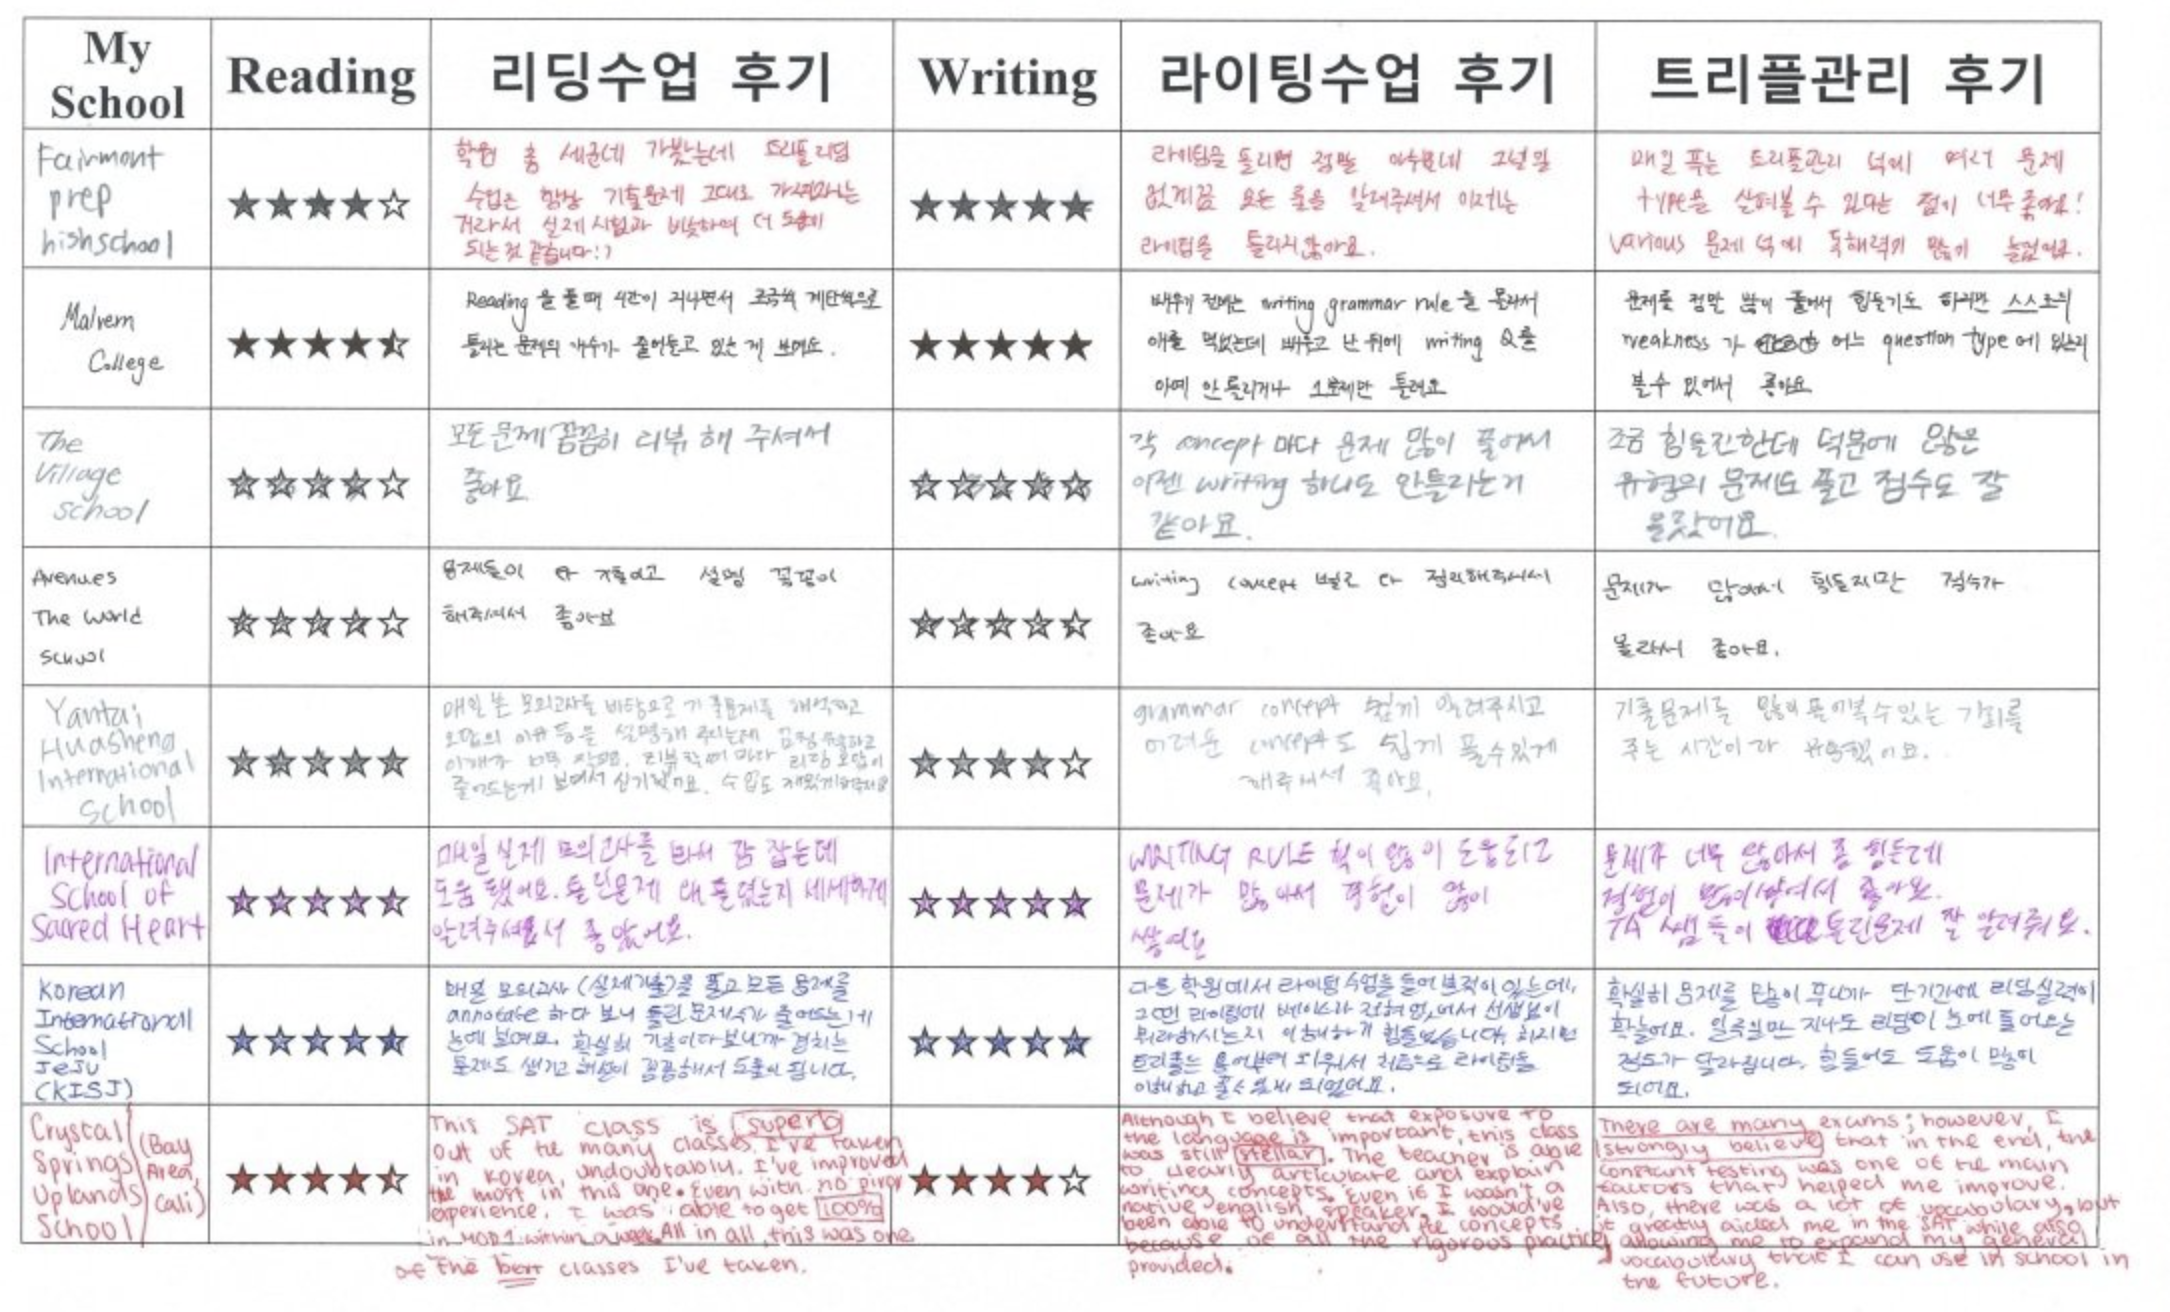 My School
Reading
리딩수업 후기
Writing
라이팅수업 후기
트리플관리 후기
Fairmont
prep
highschool
학원 총 세군데 가봤는데 트리플 리딩
수업은 항상 기출문제 그대로 가져와서 하는
거라서 실제 시험과 비슷하여 더 도움이
되는 것 같습니다!
라이팅을 틀리면 정말 아쉬운데 그럴 일
없게끔 모든 룰을 알려주셔서 이제는
라이팅을 틀리지 않아요.
매일 푸는 트리플관리 덕에 여러 문제
type을 살펴볼 수 있다는 점이 너무 좋아요!
various 문제 덕에 독해력이 많이 늘었어요.
Malvern
College
Reading 을 풀 때 시간이 지나면서 조금씩 계단식으로
틀리는 문제의 개수가 줄어들고 있는 게 보여요.
배우기 전에는 writing grammar rule 을 몰라서
애를 먹었는데 배우고 난 뒤에 writing Q를
아예 안 틀리거나 1문제만 틀려요
문제를 정말 많이 풀어서 힘들기도 하지만 스스로의
weakness 가 어느 question type 에 있는지
볼 수 있어서 좋아요
The
Village
School
모든 문제 꼼꼼히 리뷰 해 주셔서
좋아요
각 concept 마다 문제 많이 풀어서
이젠 writing 하나도 안틀리는거
같아요.
조금 힘들긴한데 덕분에 많은
유형의 문제도 풀고 점수도 잘
올랐어요.
Avenues
The World
School
문제들이 다 기출이고 설명 꼼꼼이
해주셔서 좋아요
writing concept 별로 다 정리해주셔서
좋아요
문제가 많아서 힘들지만 점수가
올라서 좋아요.
Yantai
Huasheng
International
School
매일 본 모의고사를 바탕으로 기출문제를 해석하고
오답의 이유 등을 설명해 주시는데
줄어드는게 보여서 신기했어요. 수업도
grammar concept 쉽게 알려주시고
어려운 concept도 쉽게 풀수있게
해주셔서 좋아요.
기출문제를 많이 풀어볼 수 있는 기회를
주는 시간이라 유용했어요.
International
School of
Sacred Heart
매일 실제 모의고사를 봐서 감 잡는데
도움 됐어요. 틀린문제 왜 틀렸는지 세세하게
알려주셔서 좋았어요.
WRITING RULE 책이 많이 도움되고
문제가 많아서 경험이 많이
쌓여요
문제가 너무 많아서 좀 힘든데
경험이 많이 쌓여서 좋아요.
TA 쌤들이 틀린문제 잘 알려줘요.
Korean
International
School
JeJu
(KISJ)
매일 모의고사 (실제기출)을 풀고 모든 문제를
annotate 하다 보니 틀린 문제수가 줄어드는게
눈에 보여요. 확실히 기출이다보니까 겹치는
문제도 생기고 해설이 꼼꼼해서 도움이 됩니다.
다른 학원에서 라이팅 수업을 들어본적이 있는데,
그땐 라이팅에 베이스가 전혀 없어서 선생님이
뭐라하시는지 이해하기 힘들었습니다. 하지만
트리플는 용어부터 외워서 처음으로 라이팅을
이해하고 풀수 있게 되었어요.
확실히 문제를 많이 푸니까 단기간에 리딩실력이
확늘어요. 일주일만 지나도 리딩이 눈에 들어오는
정도가 달라집니다. 힘들어도 도움이 많이
되어요.
Crystal
Springs
Uplands
School
(Bay
Area,
Cali)
This SAT class is superb
out of the many classes I've taken
in Korea, undoubtably. I've improved
the most in this one. Even with no piror
experience, I was able to get 100%
in MOD1 within a week. All in all, this was one
of the best classes I've taken.
Although I believe that exposure to
the language is important, this class
was still stellar. The teacher is able
to clearly articulate and explain
writing concepts. Even if I wasn't a
native english speaker, I would've
been able to understand the concepts
because of all the rigorous practice
provided.
There are many exams; however, I
strongly believe that in the end, the
constant testing was one of the main
factors that helped me improve.
Also, there was a lot of vocabulary, but
it greatly aided me in the SAT while also
allowing me to expand my general
vocabulary that I can use in school in
the future.